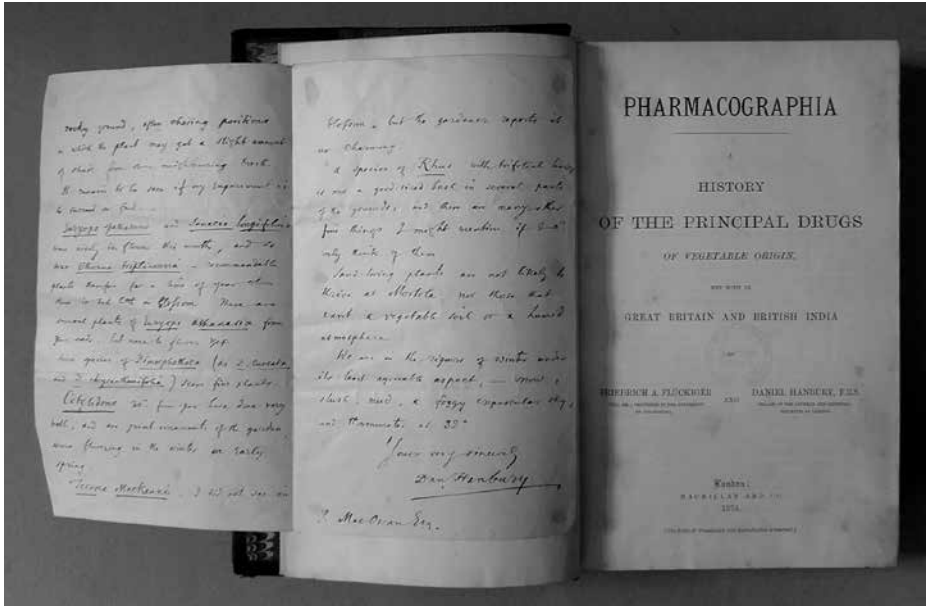 rocky ground, often chosing positions
in which the plant may get a slight amount
of shade from some neighbouring bush.
It remains to be seen if my experiment is
to succeed or fail.
Euryops pectinatus and Senecio longifolius
was nicely in flower this month, and so
was Othonna
plants for a time of year when
there is not Blossom There are
several plants of Euryops Athanasia from
your seeds, but none to flower yet.
two species of Dimorphotheca (as D. Cuneata
and D. chrysanthemifolia) seem fine plants.
Cotyledons from you have done very
well, and are great ornaments of the garden,
some flowering in the winter or early
spring
Tecoma Mackenii. I did not see in
blossom, but the gardener reports it
as charming.
A species of Rhus with trifoliate leaves
is now a good sized bush in several parts
of the grounds, and there are many other
fine things I might mention if I
only think of them
Sand-loving plants are not likely to
thrive at Mortola nor those that
want a vegetable soil or a humid
atmosphere.
We are in the rigours of winter under
its least enjoyable aspect, — snow,
slush, mud, a foggy crepuscular sky,
and thermometer at 32°
Yours very sincerely
Dan. Hanbury
P. MacOwan Esq.
PHARMACOGRAPHIA
A
HISTORY
OF THE PRINCIPAL DRUGS
OF VEGETABLE ORIGIN,
MET WITH IN
GREAT BRITAIN AND BRITISH INDIA
BY
FRIEDRICH A. FLÜCKIGER AND DANIEL HANBURY, F.R.S.
London:
MACMILLAN AND CO.
1874.
[The Right of Translation and Reproduction is Reserved.]